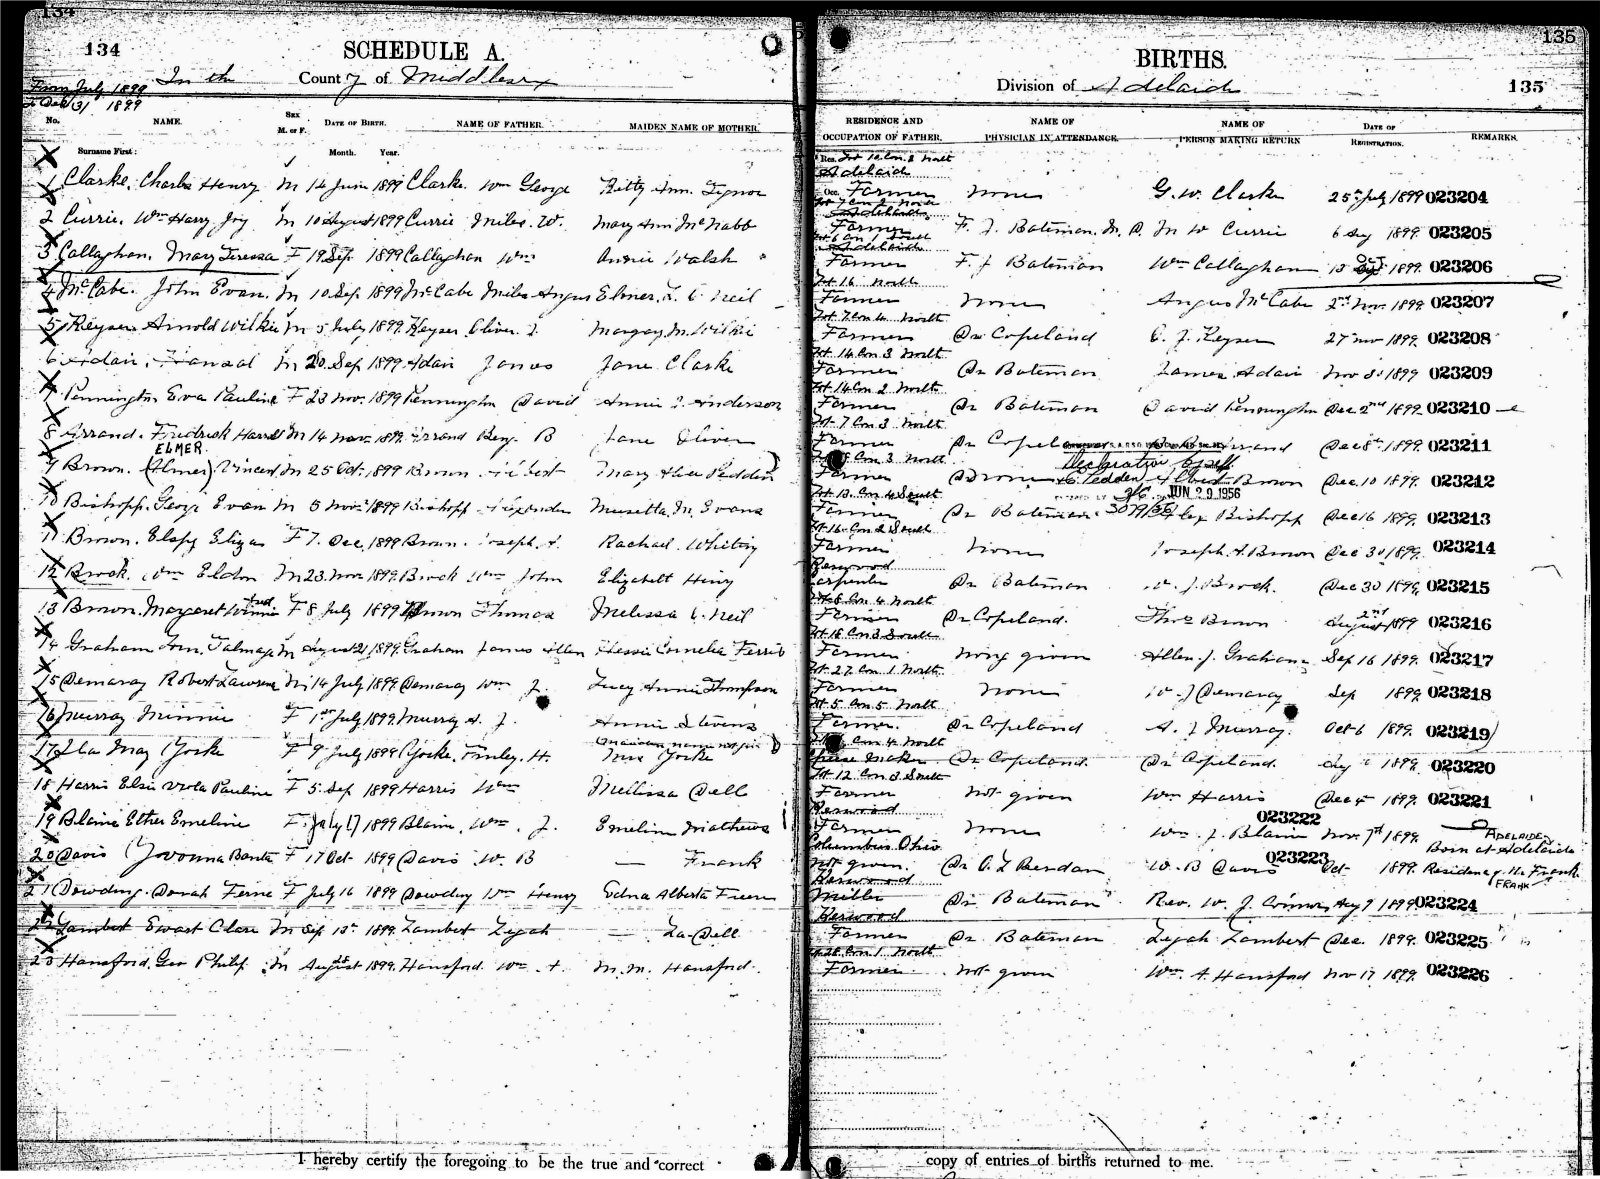 134
134
SCHEDULE A.
From July 1899 In the County of Middlesex
to Dec 31 1899
No. NAME. SEX M. or F. DATE OF BIRTH. NAME OF FATHER. MAIDEN NAME OF MOTHER.
Surname First: Month. Year.
1 Clarke, Charles Henry M 14 June 1899 Clarke. Wm George Kitty Ann
2 Currie. Wm Harry Joy M 10 August 1899 Currie Miles. W. Mary Ann McNabb
3 Callaghan. Mary Teressa F 19 Sep 1899 Callaghan Wm Annie Walsh
4 McCabe. John Evan. M 10 Sep. 1899 McCabe Miles Angus Elmer. L. C. Neil
5 Keyser Arnold Wilkie M 5 July 1899 Keyser Oliver. J. Margary. M. Wilkie
6 Adair. Hansal M 20 Sep 1899 Adair James Jane Clarke
7 Pennington Eva Pauline F 23 Nov. 1899 Pennington David Annie J. Anderson
8 Arrand. Fredrick Harold M 14 Nov 1899 Arrand Benj. B Jane Oliver
ELMER
9 Brown. (Elmer) Vincent M 25 Oct. 1899 Brown Albert Mary Alice Pedden
10 Bishopp. George Evan M 5 Nov. 1899 Bishopp Alexander Musetta. M. Evans
11 Brown. Elsey Eliza F 7. Dec. 1899 Brown. Joseph. A. Rachael. Whiting
12 Brock. Wm Eldon M 23. Nov. 1899 Brock Wm John Elizabeth Henry
13 Brown. Margaret Winnifred F 8 July 1899 Brown Thomas Melissa C. Neil
14 Graham Talmage M August 21 1899 Graham James Allen Hessie Cornelia Ferris
15 Demaray Robert Lawrence M 14 July 1899 Demaray Wm J. Lucy Annie Thompson
16 Murray Minnie F 1st July 1899 Murray A. J. Annie Stevens
17 Ila May Yorke F 9 July 1899 Yorke. Finley. H. (maiden name not given) Mrs Yorke
18 Harris Elsie Viola Pauline F 5 Sep 1899 Harris Wm Mellissa Dell
19 Blaine Ether Emeline F. July 17 1899 Blain. Wm. J. Emeline Mathews
20 Davis Yovonna Banta F 17 Oct 1899 Davis W. B — Frank
21 Dowding. Dorah Ferne F July 16 1899 Dowding Wm Henry Edna Alberta
22 Lambert Ewart Clare M Sep 13 1899. Lambert Zejah — La-Dell
23 Hansford. Geo Philip M August 28 1899. Hansford. Wm A. M. M. Hansford.
I hereby certify the foregoing to be the true and correct
135
BIRTHS.
Division of Adelaide 135
RESIDENCE AND OCCUPATION OF FATHER. NAME OF PHYSICIAN IN ATTENDANCE. NAME OF PERSON MAKING RETURN DATE OF REGISTRATION. REMARKS.
Res. Lot 10 Con. 2 North
Adelaide
Occ. Farmer None G. W. Clarke 25th July 1899 023204
Lot 7 Con 2 North
Adelaide
Farmer F. J. Bateman. M. D. M W Currie 6 Sep 1899. 023205
Lot 6 Con 1 South
Adelaide
Farmer F. J Bateman Wm Callaghan 13 Oct 1899. 023206
Lot 16 North
Farmer None Angus McCabe 2nd Nov. 1899. 023207
Lot 7 Con 4 North
Farmer Dr Copeland O. J. Keyser 27 Nov 1899. 023208
Lot 14 Con 3 North
Farmer Dr Bateman James Adair Nov 30 1899 023209
Lot 14 Con 2 North
Farmer Dr Bateman David Pennington Dec 2nd 1899. 023210
Lot 7 Con 3 North
Farmer Dr Copeland Arrand Dec 8th 1899. 023211
Con 3 North Declaration by
Farmer Pedden Albert Brown Dec. 10 1899. 023212
Lot 13. Con 4 South JUN 29 1956
Farmer Dr Bateman. 3079/56 Alex Bishopp Dec 16 1899. 023213
Lot 16. Con 2 South
Farmer None Joseph. A. Brown Dec 30 1899. 023214
Kerwood
Carpenter Dr Bateman W. J. Brock. Dec 30 1899. 023215
Lot 8 Con 4 North
Farmer Dr Copeland. Thos Brown August 2nd 1899 023216
Lot 18 Con 3 South
Farmer None given Allen. J. Graham Sep 16 1899. 023217
Lot 27 Con 1 North
Farmer None W. J Demaray Sep 1899. 023218
Lot 5 Con 5 North
Farmer. Dr Copeland A. J Murray. Oct 6 1899. 023219
Con 4 North
Cheese Maker Dr Copeland. Dr Copeland. 1899. 023220
Lot 12 Con 3 South
Farmer Not given Wm Harris Dec 4th 1899. 023221
Kerwood 023222
Farmer None Wm. J. Blain Nov. 7th 1899. ADELAIDE
Columbus Ohio Born at Adelaide
Not given. Dr O. L Bendan W. B Davis 023223 Oct 1899. Residence of Mr Frank. (FRANK)
Kerwood
Miller Dr. Bateman Rev. W. J. Connor Aug 9 1899 023224
Kerwood
Farmer Dr. Bateman Zejah Lambert Dec. 1899. 023225
Lot 28 Con 1 North
Farmer. Not given Wm. A. Hansford Nov 17 1899. 023226
copy of entries of births returned to me.